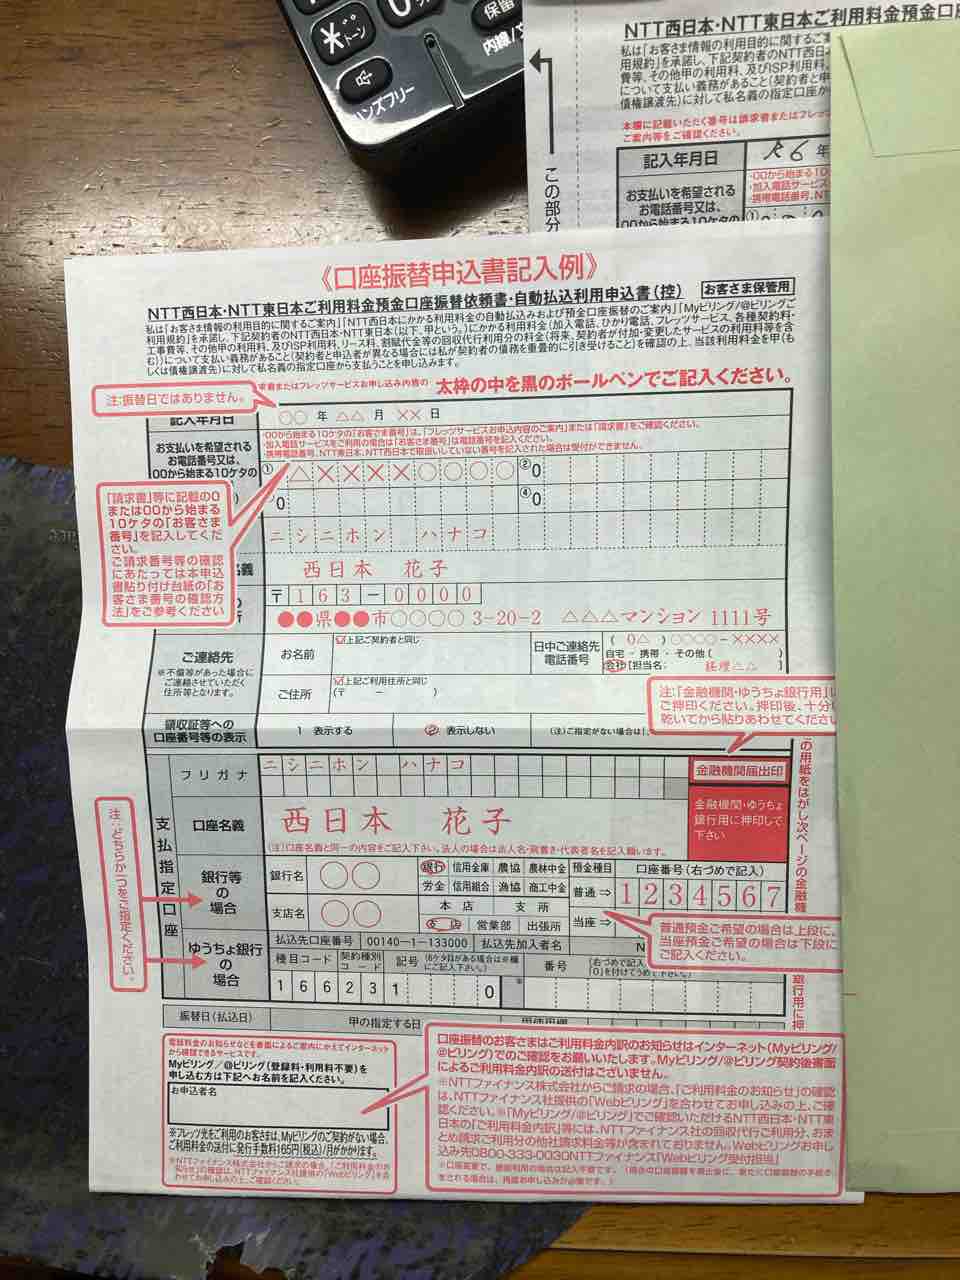 トーン
保留
内線/
ンズフリー
NTT西日本・NTT東日本ご利用料金預金口
本欄に記載いただく番号は請求書または
ご案内等をご確認ください。
記入年月日
R6 年
お支払いを希望される
お電話番号又は、
00から始まる10ケタの
この部分
《口座振替申込書記入例》
NTT西日本・NTT東日本ご利用料金預金口座振替依頼書・自動払込利用申込書(控)
お客さま保管用
私は「お客さま情報の利用目的に関するご案内」「NTT西日本にかかる利用料金の自動払込みおよび預金口座振替のご案内」「Myビリング/@ビリングご
利用規約」を承諾し、下記契約者のNTT西日本・NTT東日本(以下、甲という。)にかかる利用料金(加入電話、ひかり電話、フレッツサービス、各種契約料・
工事費等、その他甲の利用料、及びISP利用料、リース料、割賦代金等の回収代行利用分の料金(将来、契約者が付加・変更したサービスの利用料等を含
む))について支払い義務があること(契約者と申込者が異なる場合には私が契約者の債務を重畳的に引き受けること)を確認の上、当該利用料金を甲(も
しくは債権譲渡先)に対して私名義の指定口座から支払うことを申し込みます。
太枠の中を黒のボールペンでご記入ください。
注:振替日ではありません。
記入年月日
○○ 年 △△ 月 ×× 日
お支払いを希望される
お電話番号又は、
00から始まる10ケタの
・00から始まる10ケタの「お客さま番号」は、「フレッツサービスお申込内容のご案内」または「請求書」をご確認ください。
・加入電話サービスをご利用の場合は「お客さま番号」は電話番号を記入ください。
・携帯電話番号、NTT東日本、NTT西日本で取扱いしていない番号を記入された場合は受付ができません。
① △××××○○○○ ②0
0 ④0
「請求書」等に記載の0
または00から始まる
10ケタの「お客さま
番号」を記入してくだ
さい。
ご請求番号等の確認
にあたっては本申込
書貼り付け台紙の「お
客さま番号の確認方
法」をご参考ください
ニシニホン ハナコ
西日本 花子
〒163-0000
●●県●●市○○○○ 3-20-2 △△△マンション 1111号
ご連絡先
※不備等があった場合に
ご連絡させていただく
住所等となります。
お名前
上記ご契約者と同じ
日中ご連絡先
電話番号
(0△)○○○○-××××
自宅・携帯・その他( )
会社[担当名: 経理△△ ]
ご住所
上記ご利用住所と同じ
(〒 - )
注:「金融機関・ゆうちょ銀行用」に
ご押印ください。押印後、十分
乾いてから貼りあわせてください
領収証等への
口座番号等の表示
1 表示する
② 表示しない
(注)ご指定がない場合は
支払指定口座
フリガナ
ニシニホン ハナコ
金融機関届出印
口座名義
西日本 花子
金融機関・ゆうちょ
銀行用に押印して
下さい
(注)口座名義と同一の内容をご記入下さい。法人の場合は法人名・肩書き・代表者名を記入願います。
注:どちらか一つをご指定ください。
銀行等
の
場合
銀行名
○○
銀行 信用金庫 農協 農林中金
労金 信用組合 漁協 商工中金
預金種目
口座番号(右づめで記入)
普通⇒
1234567
支店名
○○
本店 支所
支店 営業部 出張所
当座⇒
普通預金ご希望の場合は上段に、
当座預金ご希望の場合は下段に
ご記入ください。
ゆうちょ銀行
の
場合
払込先口座番号 00140-1-133000 払込先加入者名 N
種目コード
契約種別コード
記号 (6ケタ目がある場合は※欄にご記入下さい。)
番号
16623 1 0 ※
振替日(払込日)
甲の指定する日
の用紙をはがし次ページの金融機
銀行用に押
電話料金のお知らせなどを書面によるご案内にかえてインターネット
から確認できるサービスです。
Myビリング/@ビリング(登録料・利用料不要)を
申し込む方は下記へお名前を記入ください。
お申込者名
※フレッツ光をご利用のお客さまは、Myビリングのご契約がない場合、
ご利用料金の送付に発行手数料165円(税込)/月がかかります。
※NTTファイナンス株式会社からご請求の場合、「ご利用料金のお
知らせ」の確認は、NTTファイナンス社提供の「Webビリング」を合
わせてお申し込みの上、ご確認ください。
口座振替のお客さまはご利用料金内訳のお知らせはインターネット(Myビリング/
@ビリング)でのご確認をお願いいたします。Myビリング/@ビリング契約後書面
によるご利用料金内訳の送付はございません。
※NTTファイナンス株式会社からご請求の場合、「ご利用料金のお知らせ」の確認
は、NTTファイナンス社提供の「Webビリング」を合わせてお申し込みの上、ご確
認ください。※「Myビリング/@ビリング」でご確認いただけるNTT西日本・NTT東
日本の「ご利用料金内訳」等には、NTTファイナンス社の回収代行ご利用分、おま
とめ請求ご利用分の他社請求料金等が含まれておりません。Webビリングお申し
込み先0800-333-0030NTTファイナンス「Webビリング受付担当」